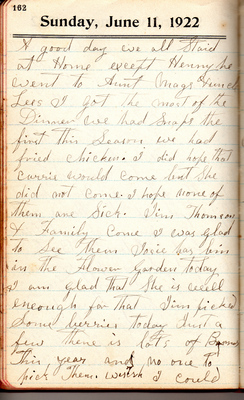 162
Sunday, June 11, 1922
A good day we all Staid
at Home except Henry he
went to Aunt Mags & Uncle
Lees I got the most of the
Dinner we had Snaps the
first this Season we had
fried chicken. I did hope that
Carrie would come but she
did not come. I hope none of
them are Sick. Jim Thomson
& Family Come I was glad
to See Them Josie has bin
in the flower garden today
I am glad that She is well
enough for that Jim picked
Some berries today Just a
few there is lots of
This year and no one to
pick Them. wish I could